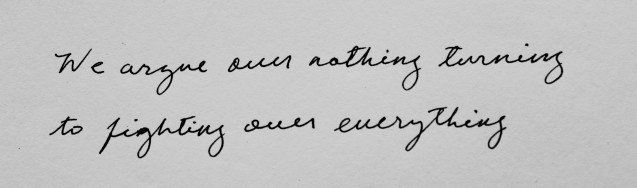 We argue over nothing turning
to fighting over everything